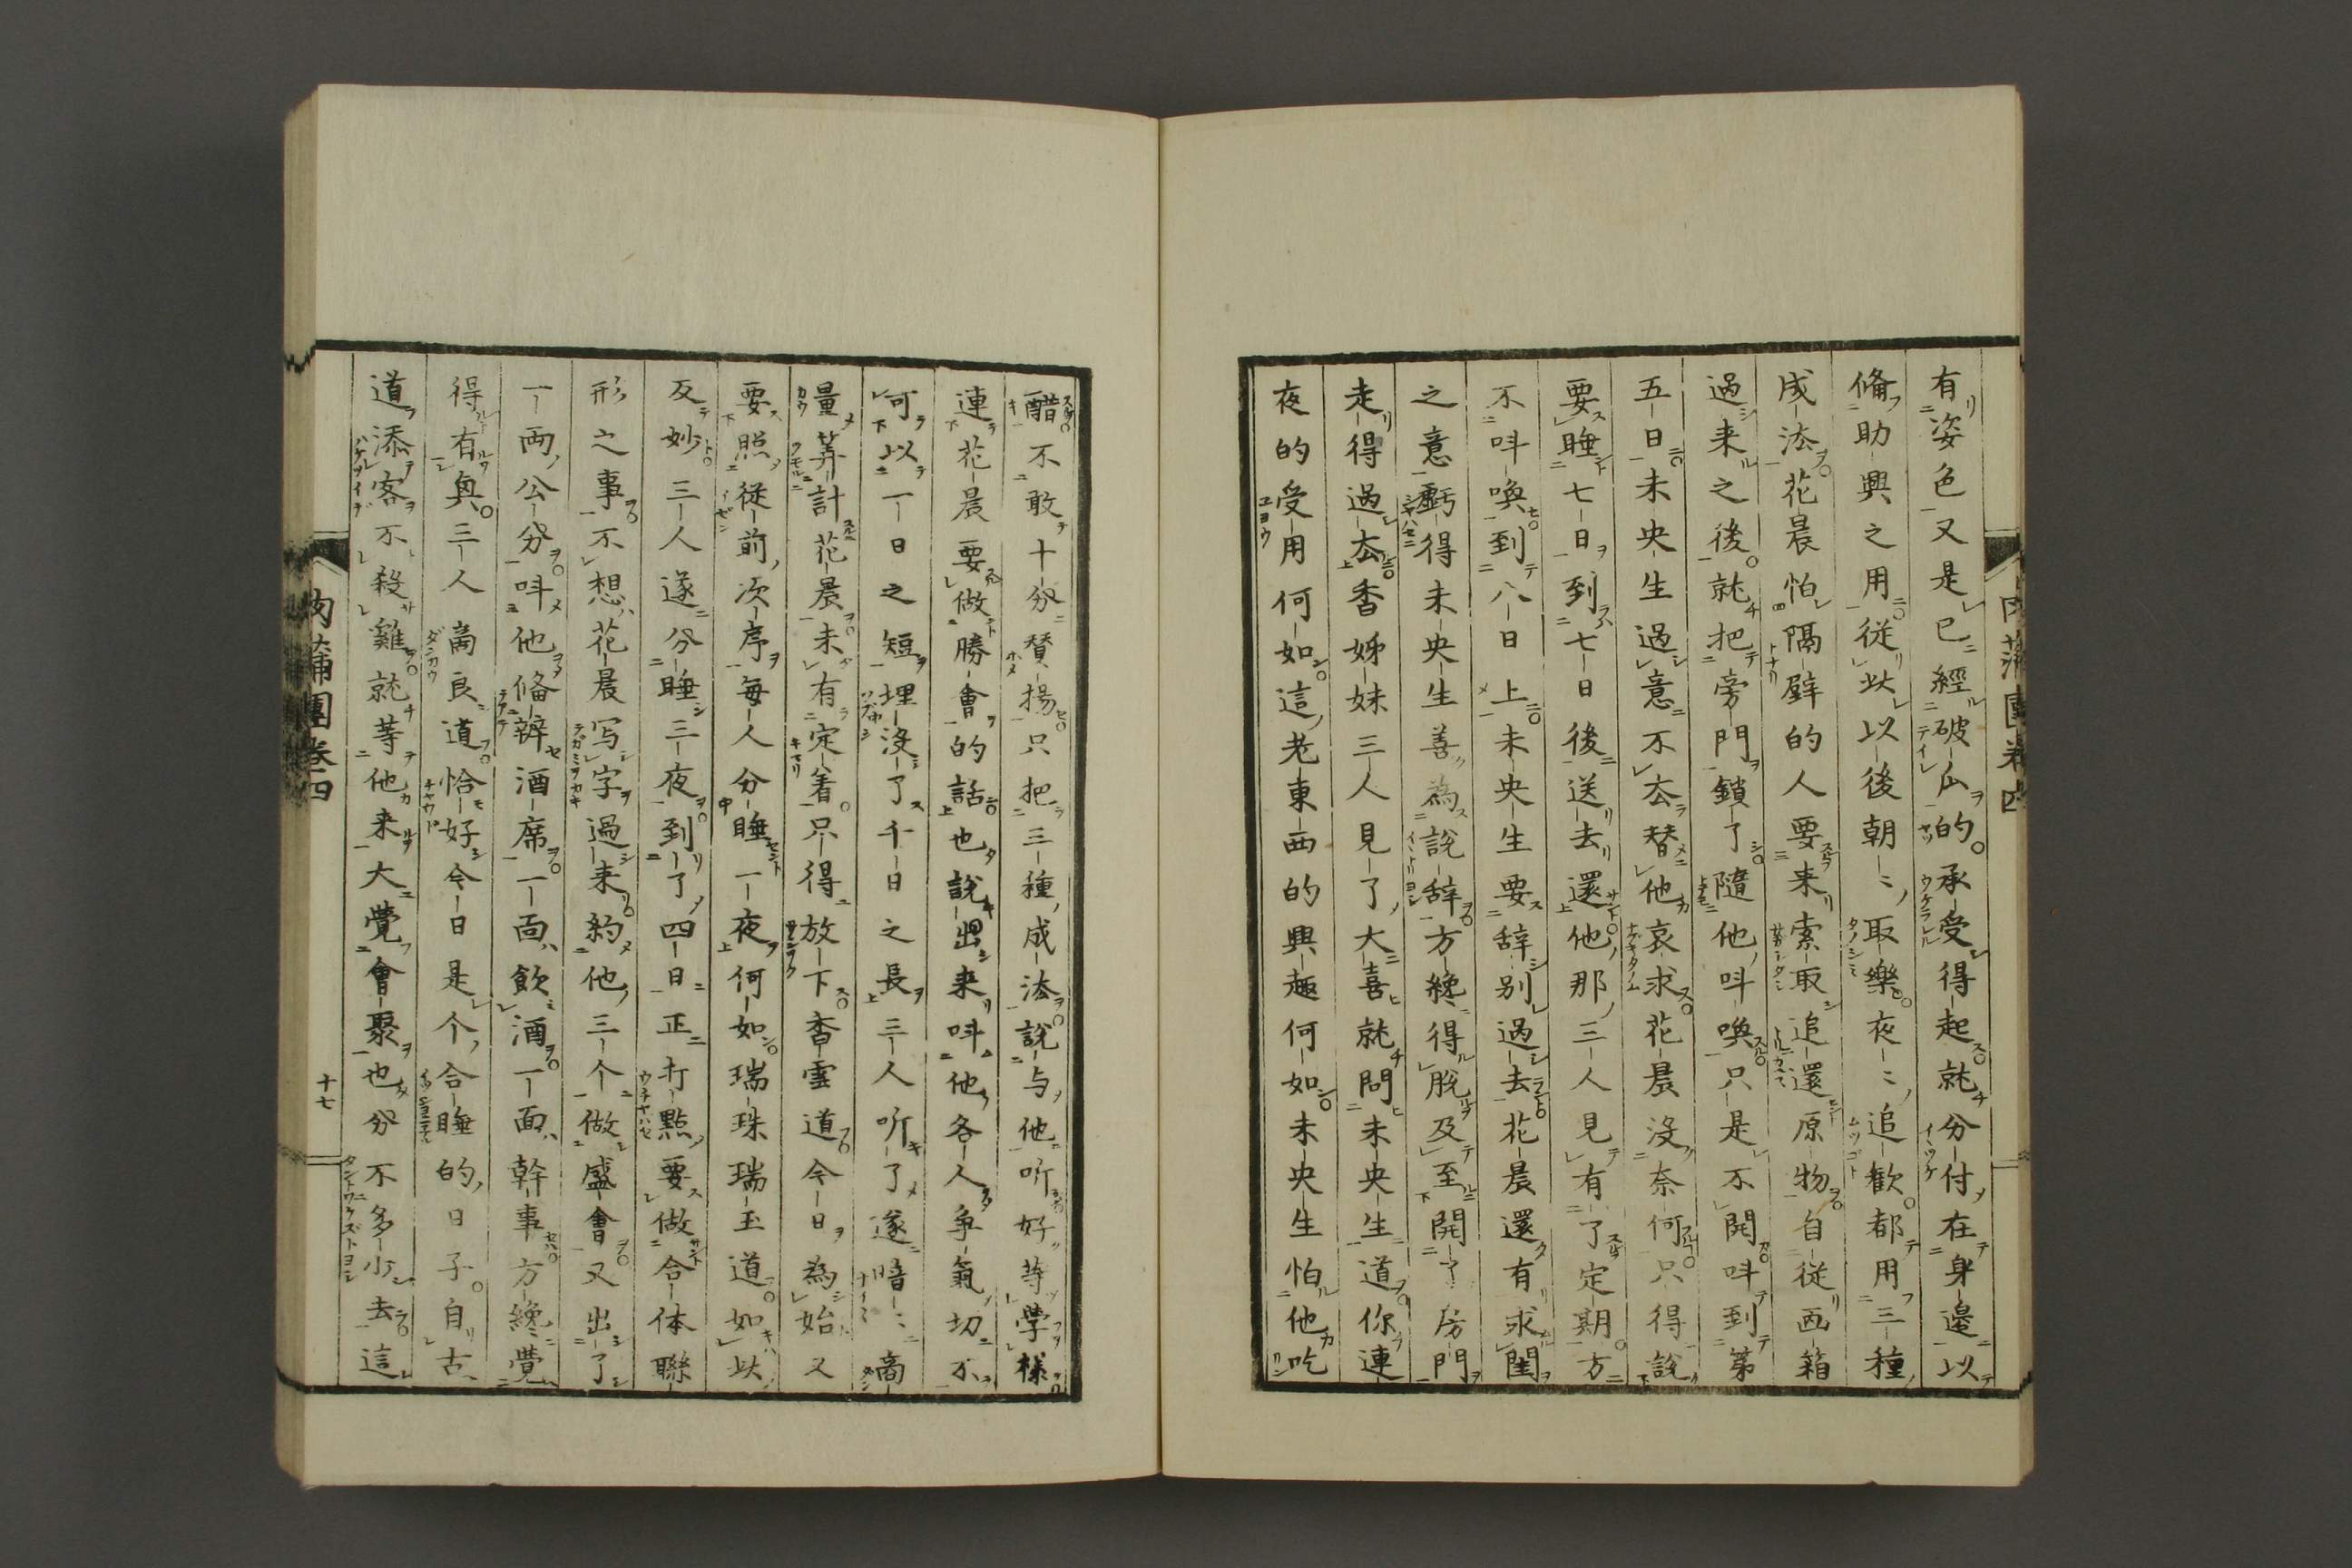 有姿色又是已經破瓜的承受得起就分付在身邊以
備助興之用從此以後朝〻取樂夜〻追歡都用三種
成法花晨怕隔壁的人要来索取追還原物自從西箱
過来之後就把旁門鎖了隨他呌喚只是不開呌到第
五日未央生過意不去替他哀求花晨沒奈何只得說
要睡七日到七日後送去還他那三人見有了定期方
不呌喚到八日上未央生要辞别過去花晨還有求闔
之意虧得未央生善為說辞方纔得脫及至開了房門
走得過去香姊妹三人見了大喜就問未央生道你連
夜的受用何如這老東西的興趣何如未央生怕他吃
肉蒲團卷四
醋不敢十分賛揚只把三種成法說与他听好等學樣
連花晨要做勝會的話也說出来呌他各人争氣切不
可以一日之短埋沒了千日之長三人听了遂暗〻商
量筭計花晨未有定着只得放下香雲道今日為始又
要照従前次序每人分睡一夜何如瑞珠瑞玉道如此
反妙三人遂分睡三夜到了四日正打點要做合体聯
形之事不想花晨写字過来約他三个做盛會又出了
一両公分呌他備辦酒席一面飲酒一面幹事方纔覺
得有與三人商良道恰好今日是个合睡的日子自古
道添客不殺雞就等他来大覺會聚也分不多少去這
肉蒲團卷四
十七